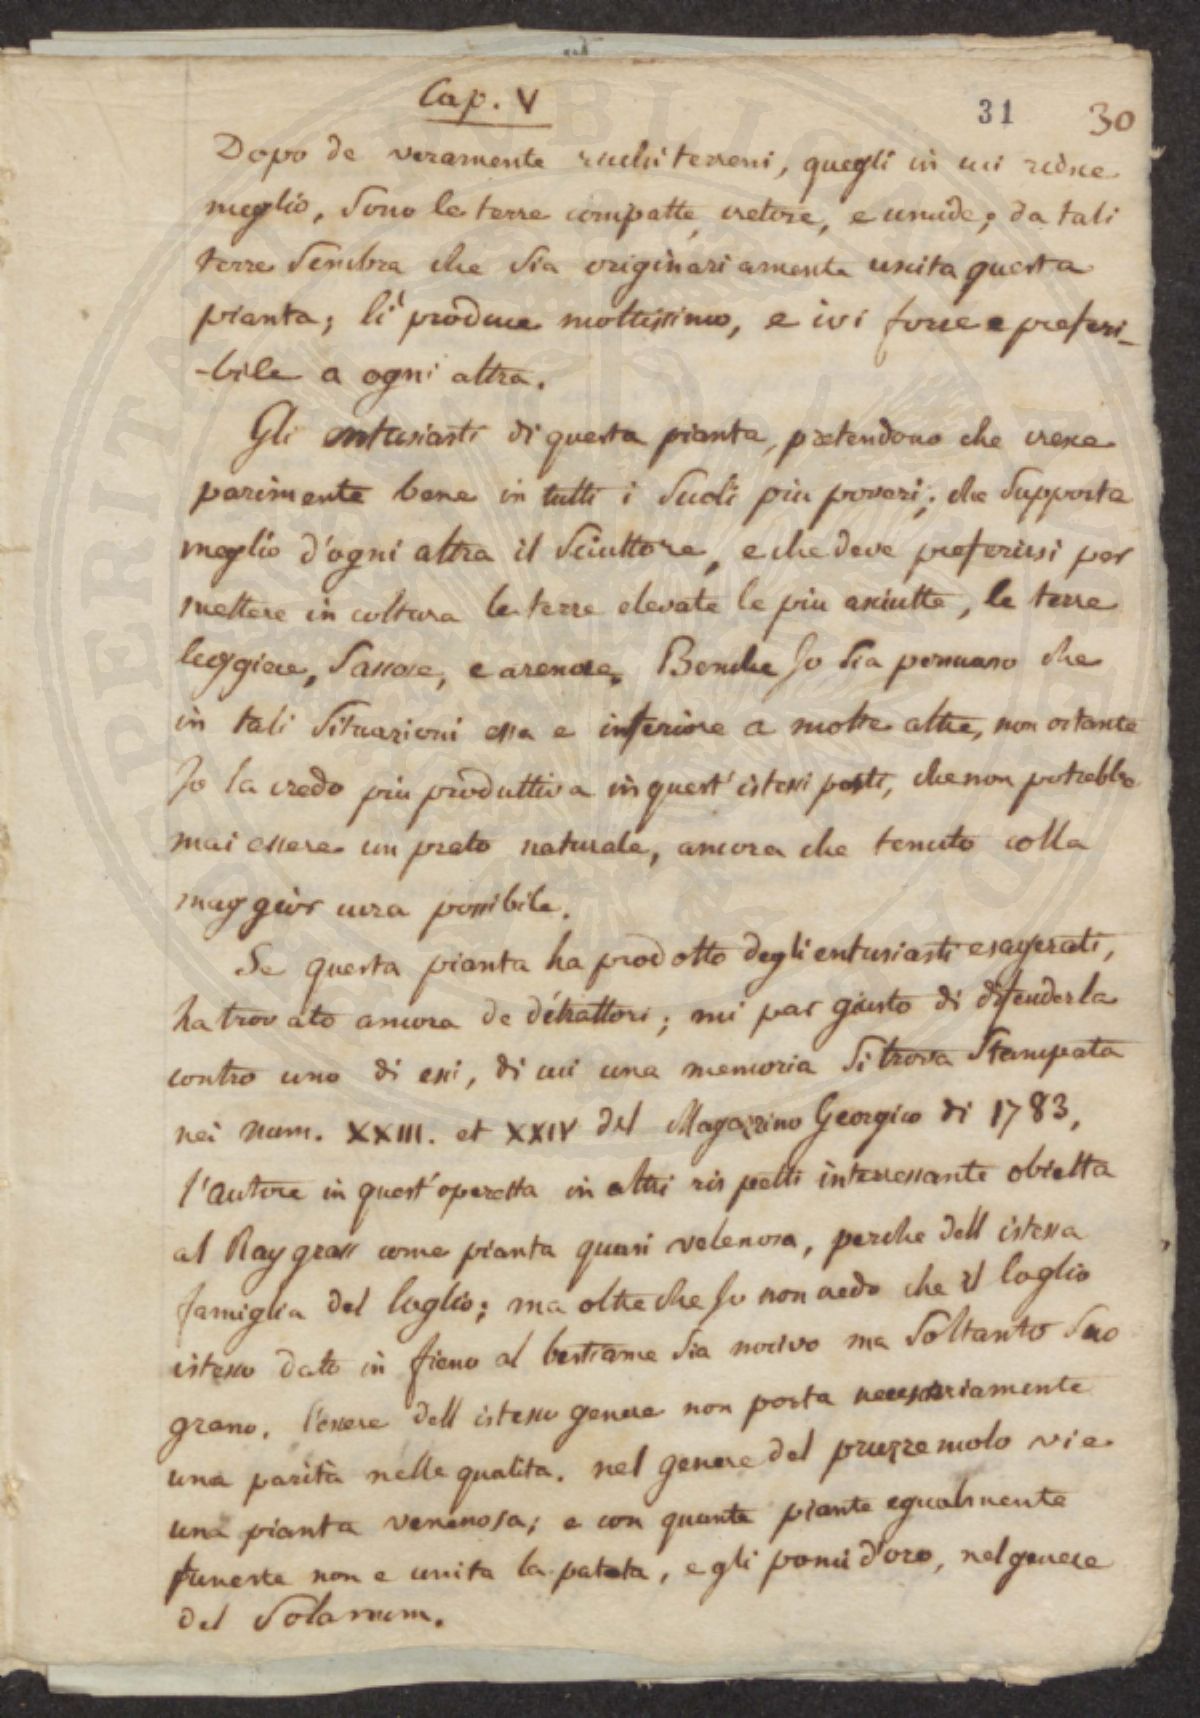 Cap. V
31 30
Dopo de veramente ricchi terreni, quegli in cui riesce
meglio, sono le terre compatte, cretose, e umide; da tali
terre sembra che sia originariamente uscita questa
pianta; li produce moltissimo, e ivi forse e preferi-
-bile a ogni altra.
Gli entusiasti di questa pianta, pretendono che cresce
parimente bene in tutti i suoli piu poveri; che supporta
meglio d'ogni altra il sciuttore, e che deve preferirsi per
mettere in coltura le terre elevate le piu asciutte, le terre
leggiere, sassose, e arenose. Benche Jo sia persuaso che
in tali situazioni essa e inferiore a molte altre, non ostante
Jo la credo piu produttiva in quest'istessi posti, che non potrebbe
mai essere un prato naturale, ancora che tenuto colla
maggior cura possibile.
Se questa pianta ha prodotto degli entusiasti esagerati,
ha trovato ancora de detrattori; mi par giusto di difenderla
contro uno di essi, di cui una memoria si trova stampata
nei num. XXIII. et XXIV del Magazzino Georgico di 1783,
l'autore in quest'operetta in altri rispetti interressante obietta
al Ray grass come pianta quasi velenosa, perche dell istessa
famiglia del loglio; ma oltre che Jo non credo che il loglio
istesso dato in fieno al bestiame sia nocivo ma soltanto suo
grano, l'essere dell istesso genere non porta necessariamente
una parità nelle qualita. nel genere del prezzemolo vi e
una pianta venenosa; e con quante piante egualmente
funeste non e unita la patata, e gli pomi d'oro, nel genere
del Solanum.